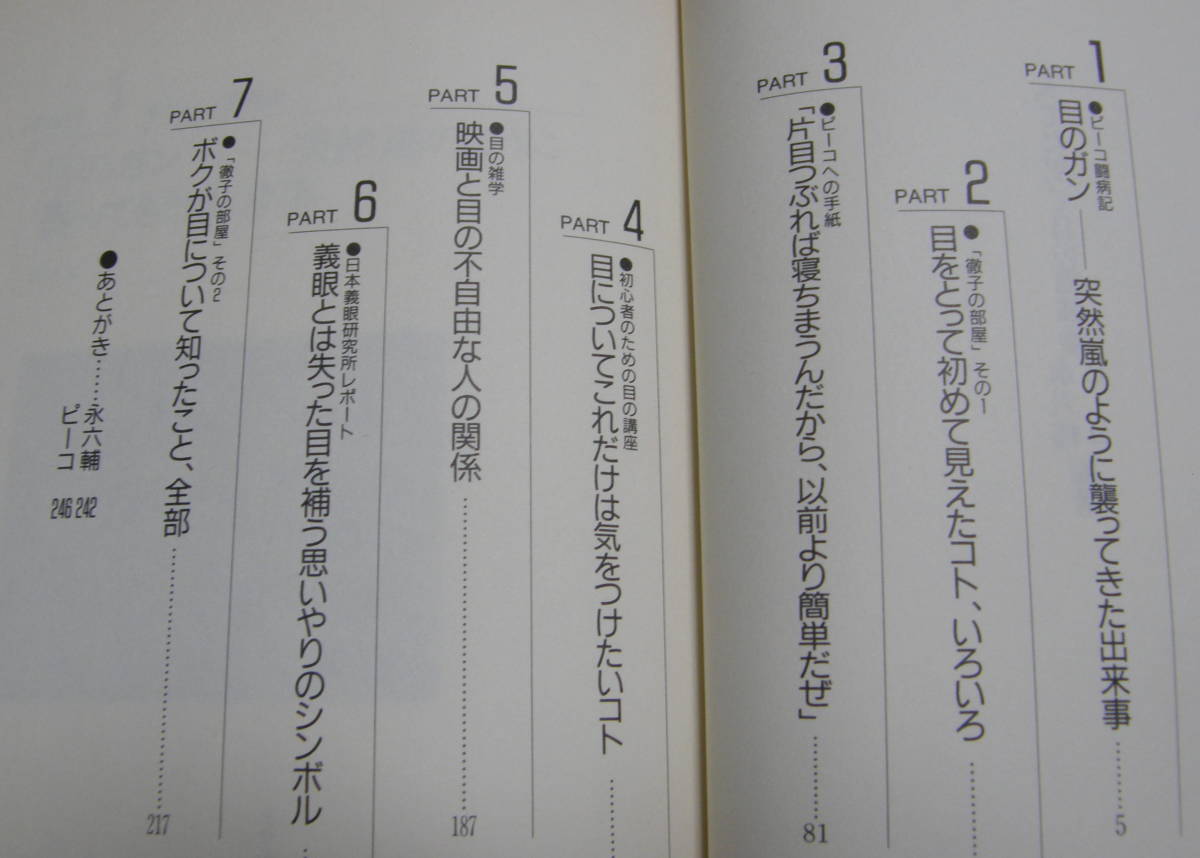 PART 1
●ピーコ闘病記
目のガン――突然嵐のように襲ってきた出来事…………5
PART 2
●「徹子の部屋」その1
目をとって初めて見えたコト、いろいろ…………
PART 3
●ピーコへの手紙
「片目つぶれば寝ちまうんだから、以前より簡単だぜ」…………81
PART 4
●初心者のための目の講座
目についてこれだけは気をつけたいコト…………
PART 5
●目の雑学
映画と目の不自由な人の関係…………187
PART 6
●日本義眼研究所レポート
義眼とは失った目を補う思いやりのシンボル…………
PART 7
●「徹子の部屋」その2
ボクが目について知ったこと、全部…………217
●あとがき……永六輔 242
ピーコ 246